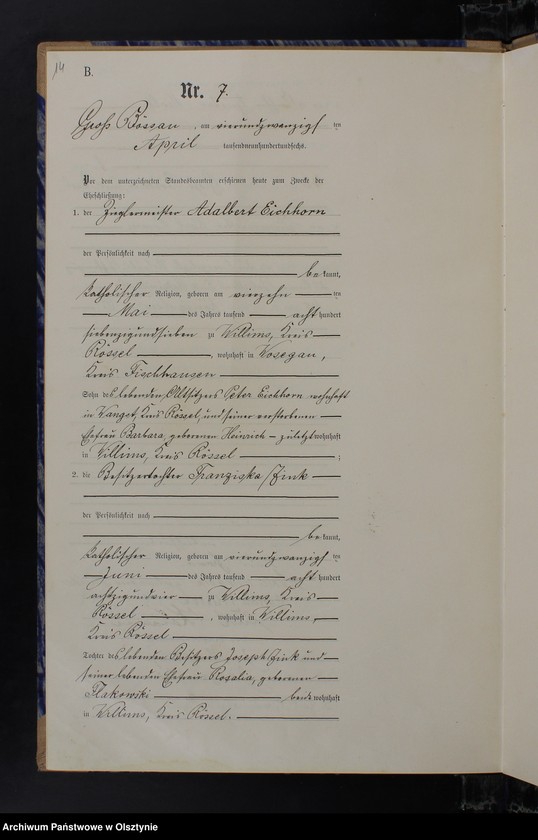 14
B.
Nr. 7.
Groß Bössau, am vierundzwanzigsten
April tausendneunhundertundsechs.
Vor dem unterzeichneten Standesbeamten erschienen heute zum Zwecke der
Eheschließung:
1. der Zieglermeister Adalbert Eichhorn
der Persönlichkeit nach
bekannt,
katholischer Religion, geboren am vierzehnten
Mai des Jahres tausend acht hundert
siebenzigundsieben zu Willims, Kreis
Rössel, wohnhaft in Wosegau,
Kreis Fischhausen
Sohn des lebenden Altsitzers Peter Eichhorn wohnhaft
in Wangst, Kreis Rössel, und seiner verstorbenen
Ehefrau Barbara, geborenen Heinrich – zuletzt wohnhaft
in Willims, Kreis Rössel ;
2. die Besitzertochter Franziska Zink
der Persönlichkeit nach
bekannt,
katholischer Religion, geboren am vierundzwanzigsten
Juni des Jahres tausend acht hundert
achtzigundvier zu Willims, Kreis
Rössel, wohnhaft in Willims,
Kreis Rössel
Tochter des lebenden Besitzers Joseph Zink und
seiner lebenden Ehefrau Rosalia, geborenen
beide wohnhaft
in Willims, Kreis Rössel.
Archiwum Państwowe w Olsztynie